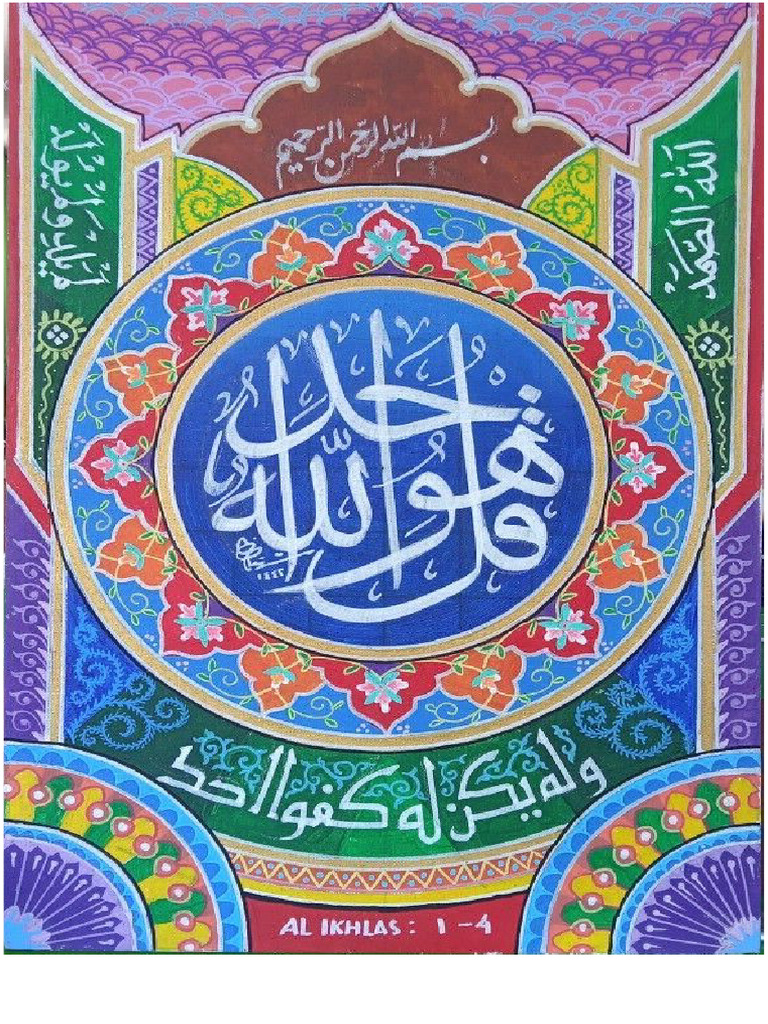 بسم الله الرحمن الرحيم
قل هو الله أحد
الله الصمد
لم يلد ولم يولد
ولم يكن له كفوا احد
AL IKHLAS: 1-4